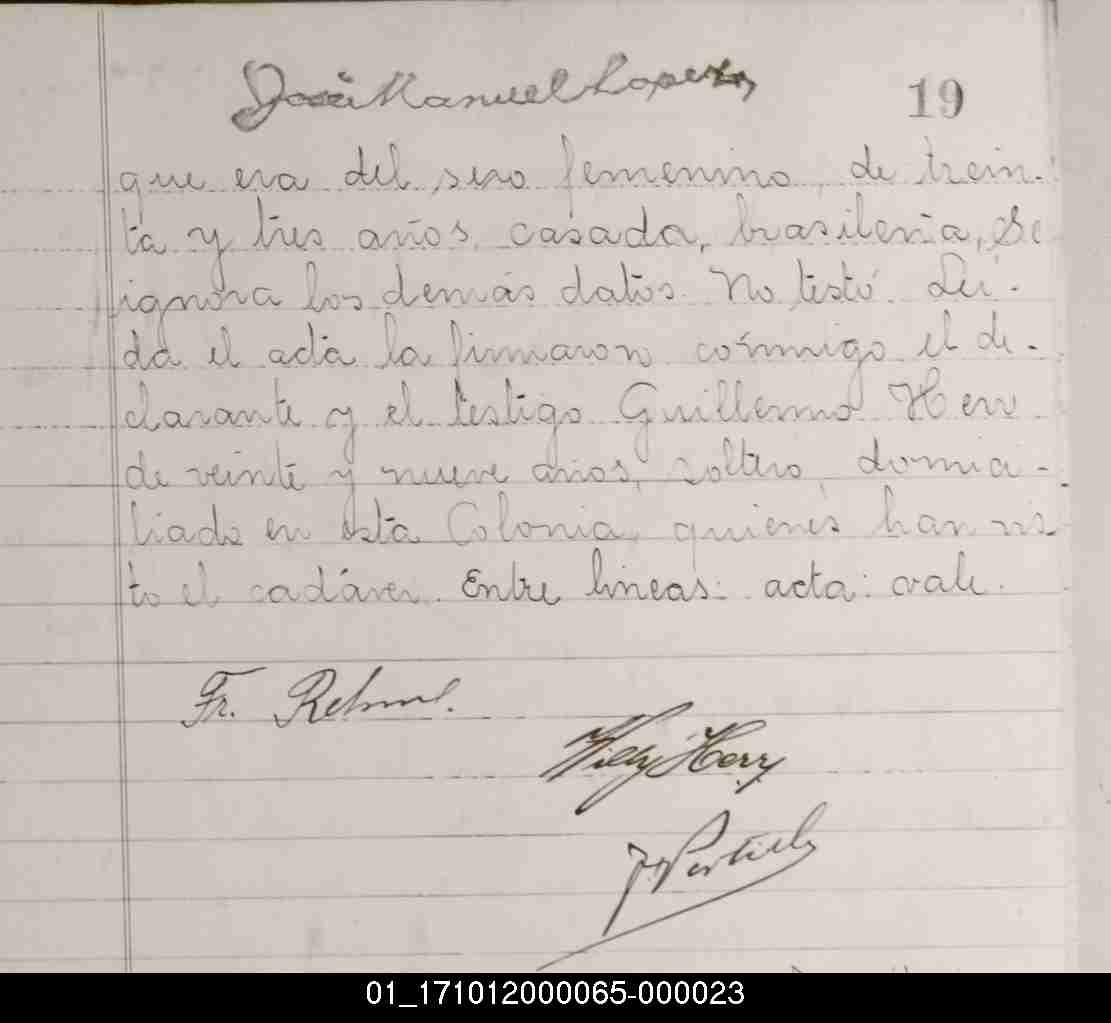 José Manuel Lopez
19
que era del sexo femenino, de trein-
ta y tres años, casada, brasileña, Se
ignora los demás datos. No testó. Leí-
da el acta la firmaron conmigo el de-
clarante y el testigo Guillermo Herr
de veinte y nueve años, soltero, domici-
liado en esta Colonia, quienes han vis-
to el cadáver. Entre líneas: acta: vale.
Fr.
Willy Herr
01_171012000065-000023